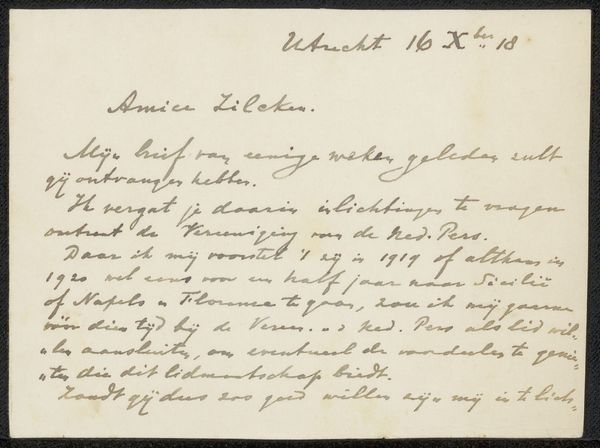 Utrecht 16 Xber 18
Amice Zilcken.
Mijn brief van eenige weken geleden zult
gij ontvangen hebben.
Ik vergat je daarin inlichtingen te vragen
omtrent de Vereeniging van de Ned. Pers.
Daar ik mij voorstel 't zij in 1919 of althans in
1920 wel eens voor een half jaar naar Sicilië
of Napels en Florence te gaan, zou ik mij gaarne
vóór dien tijd bij de Vereen. v. d. Ned. Pers als lid wil-
len aansluiten, om eventueel de voordeelen te genie-
ten die dit lidmaatschap biedt.
Zoudt gij dus zoo goed willen zijn mij in te lich-